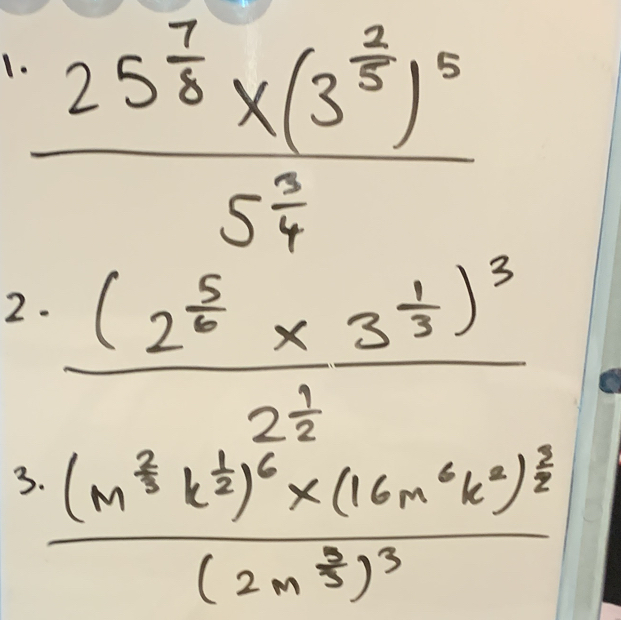 1. 25^(7/8) × (3^(2/5))^5
5^(3/4)
2. (2^(5/6) × 3^(1/3))^3
2^(1/2)
3. (m^(2/3) k^(1/2))^6 × (16m^6k^2)^(3/2)
(2m^(5/3))^3